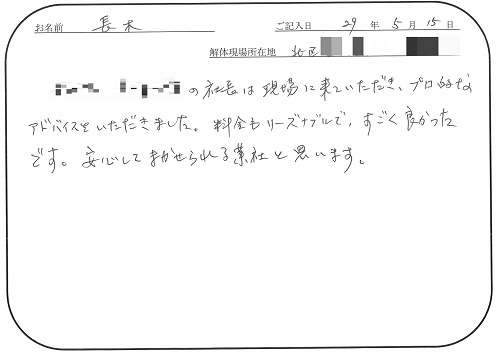 お名前 長木 ご記入日 29年5月15日
解体現場所在地 北区
の社長は現場に来ていただき、プロ的な
アドバイスをいただきました。料金もリーズナブルで、すごく良かった
です。安心してまかせられる業社と思います。